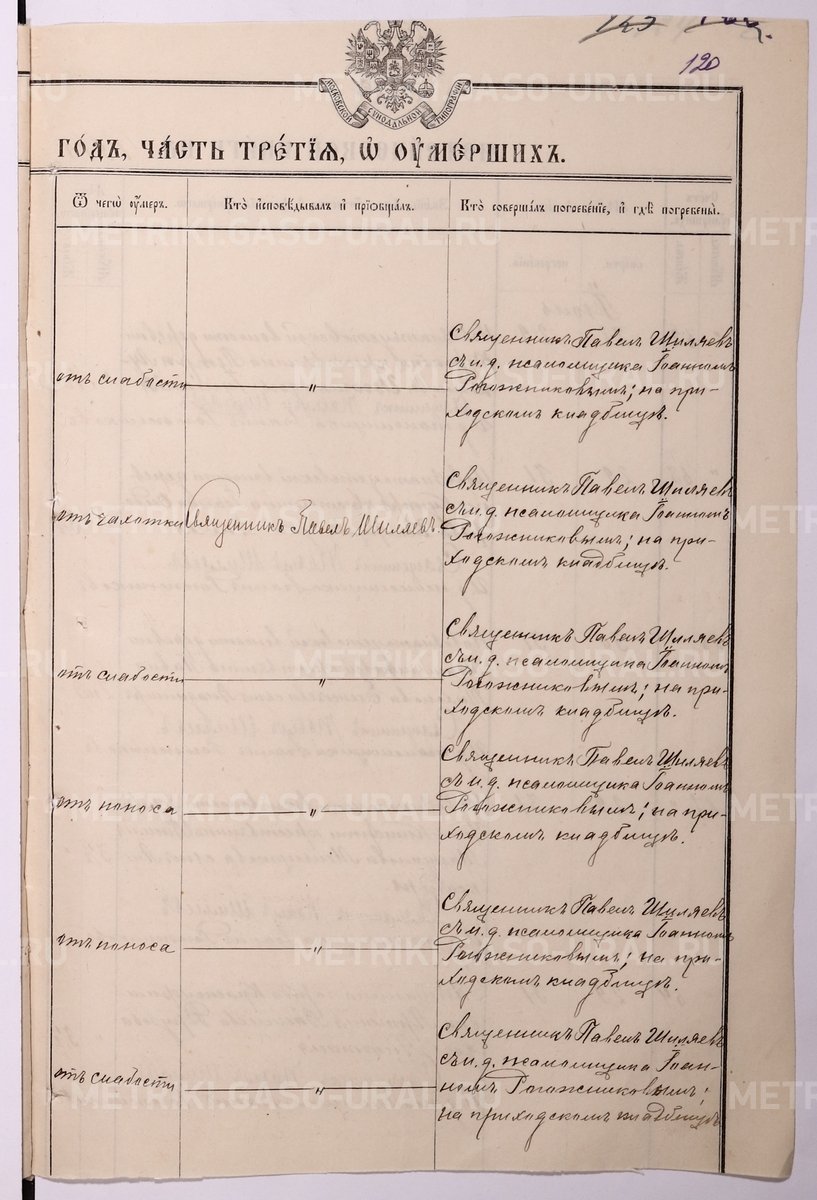 120
МОСКОВСКОЙ СѴНОДАЛЬНОЙ ТИПОГРАФІИ
ГО́ДЪ, ЧА́СТЬ ТРЕ́ТІѦ, Ѽ ОУ҆МЕ́РШИХЪ.
Ѿ чегѡ̀ оу҆́меръ.
Кто̀ и҆сповѣ́дывалъ и҆ прїѡбща́лъ.
Кто̀ соверша́лъ погребе́нїе, и҆ гдѣ̀ погребены̀.
отъ слабости
"
Священникъ Павелъ Шиляевъ
съ и. д. псаломщика Іоанномъ
Рогожниковымъ; на при-
ходскомъ кладбищѣ.
отъ чахотки
Священникъ Павелъ Шиляевъ.
Священникъ Павелъ Шиляевъ
съ и. д. псаломщика Іоанномъ
Рогожниковымъ; на при-
ходскомъ кладбищѣ.
отъ слабости
"
Священникъ Павелъ Шиляевъ
съ и. д. псаломщика Іоанномъ
Рогожниковымъ; на при-
ходскомъ кладбищѣ.
отъ поноса
"
Священникъ Павелъ Шиляевъ
съ и. д. псаломщика Іоанномъ
Рогожниковымъ; на при-
ходскомъ кладбищѣ.
отъ поноса
"
Священникъ Павелъ Шиляевъ
съ и. д. псаломщика Іоанномъ
Рогожниковымъ; на при-
ходскомъ кладбищѣ.
отъ слабости
"
Священникъ Павелъ Шиляевъ
съ и. д. псаломщика Іоан-
номъ Рогожниковымъ;
на приходскомъ кладбищѣ
METRIKI.GASO-URAL.RU